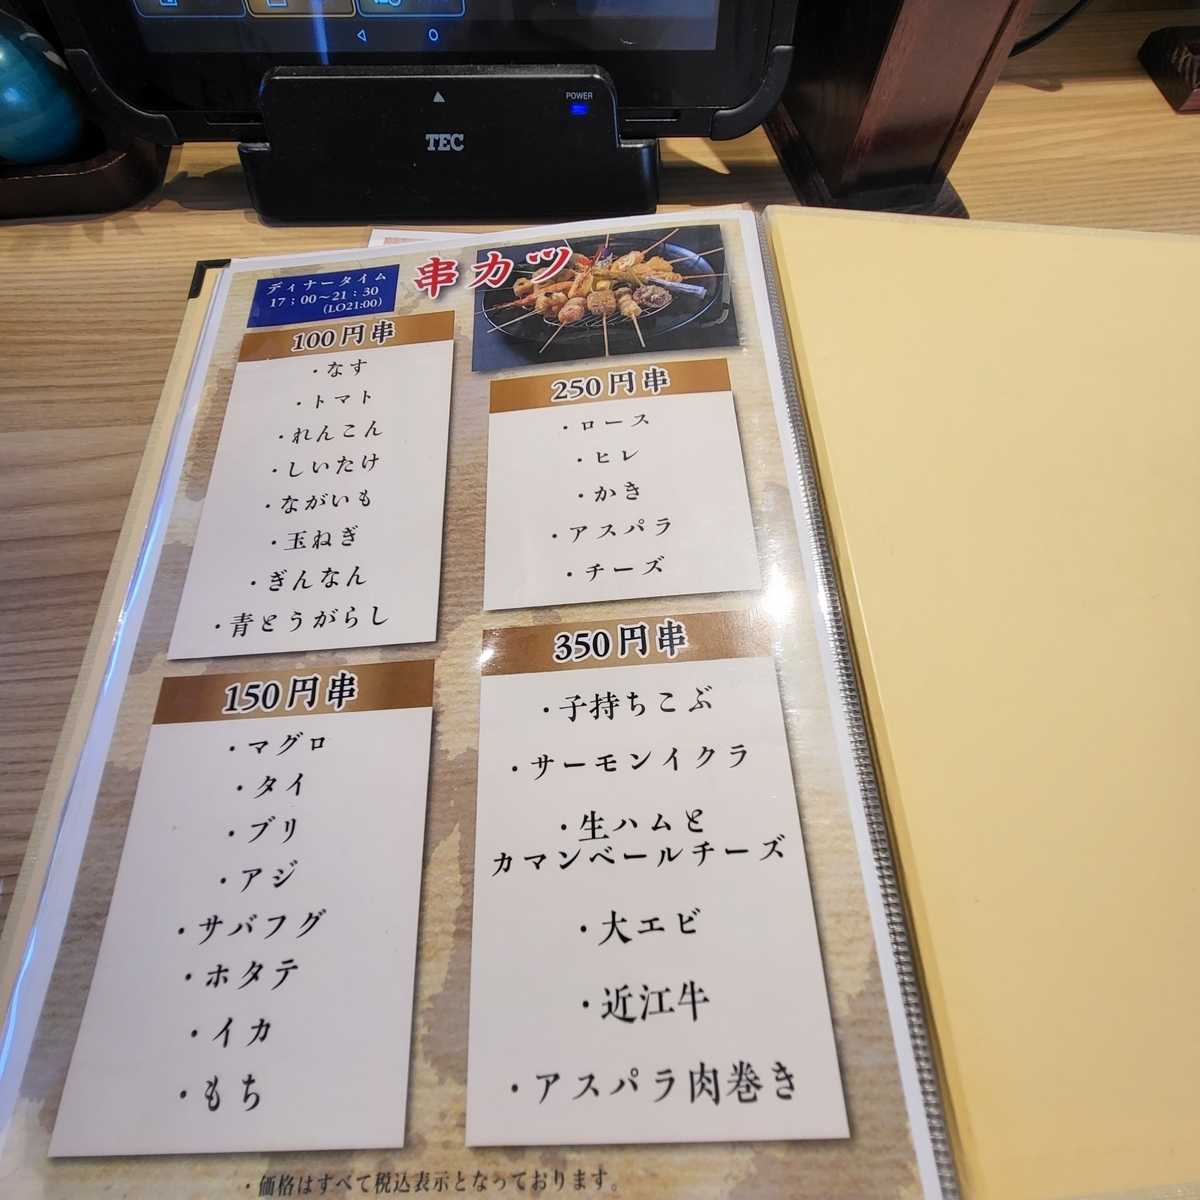 POWER
TEC
ディナータイム
17；00～21：30
(LO21:00)
串カツ
100円串
・なす
・トマト
・れんこん
・しいたけ
・ながいも
・玉ねぎ
・ぎんなん
・青とうがらし
150円串
・マグロ
・タイ
・ブリ
・アジ
・サバフグ
・ホタテ
・イカ
・もち
250円串
・ロース
・ヒレ
・かき
・アスパラ
・チーズ
350円串
・子持ちこぶ
・サーモンイクラ
・生ハムと
カマンベールチーズ
・大エビ
・近江牛
・アスパラ肉巻き
・価格はすべて税込表示となっております。